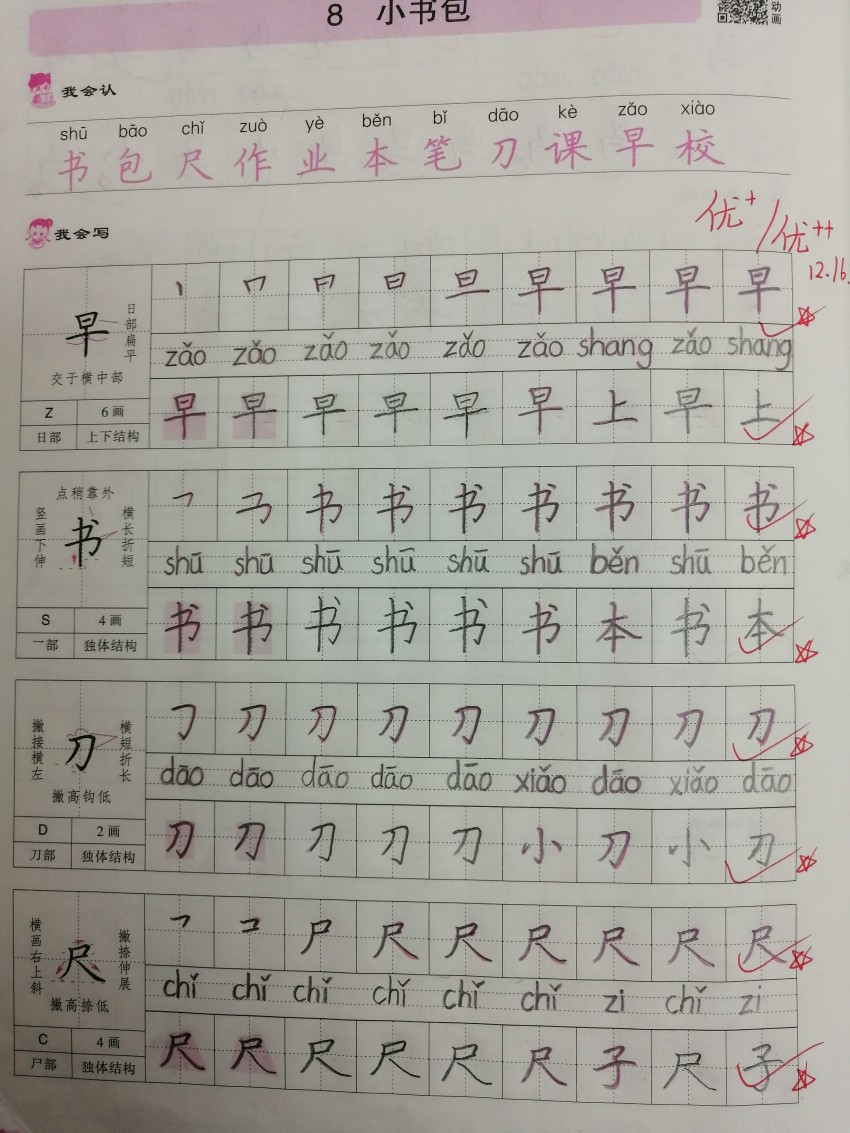 8 小书包
动画
我会认
shū bāo chǐ zuò yè běn bǐ dāo kè zǎo xiào
书 包 尺 作 业 本 笔 刀 课 早 校
我会写
优+ / 优++
12.16.
早
日部扁平
交于横中部
Z 6画
日部 上下结构
早 早 早 早
zǎo zǎo zǎo zǎo zǎo zǎo shang zǎo shang
早 早 早 早 早 早 上 早 上
点稍靠外
竖画下伸
书
横长折短
S 4画
乛部 独体结构
书 书 书 书 书 书 书
shū shū shū shū shū shū běn shū běn
书 书 书 书 书 书 本 书 本
撇接横左
刀
横短折长
撇高钩低
D 2画
刀部 独体结构
刀 刀 刀 刀 刀 刀 刀 刀
dāo dāo dāo dāo dāo xiǎo dāo xiǎo dāo
刀 刀 刀 刀 刀 小 刀 小 刀
横画右上斜
尺
撇捺伸展
撇高捺低
C 4画
尸部 独体结构
尸 尺 尺 尺 尺 尺 尺
chǐ chǐ chǐ chǐ chǐ chǐ zi chǐ zi
尺 尺 尺 尺 尺 尺 子 尺 子